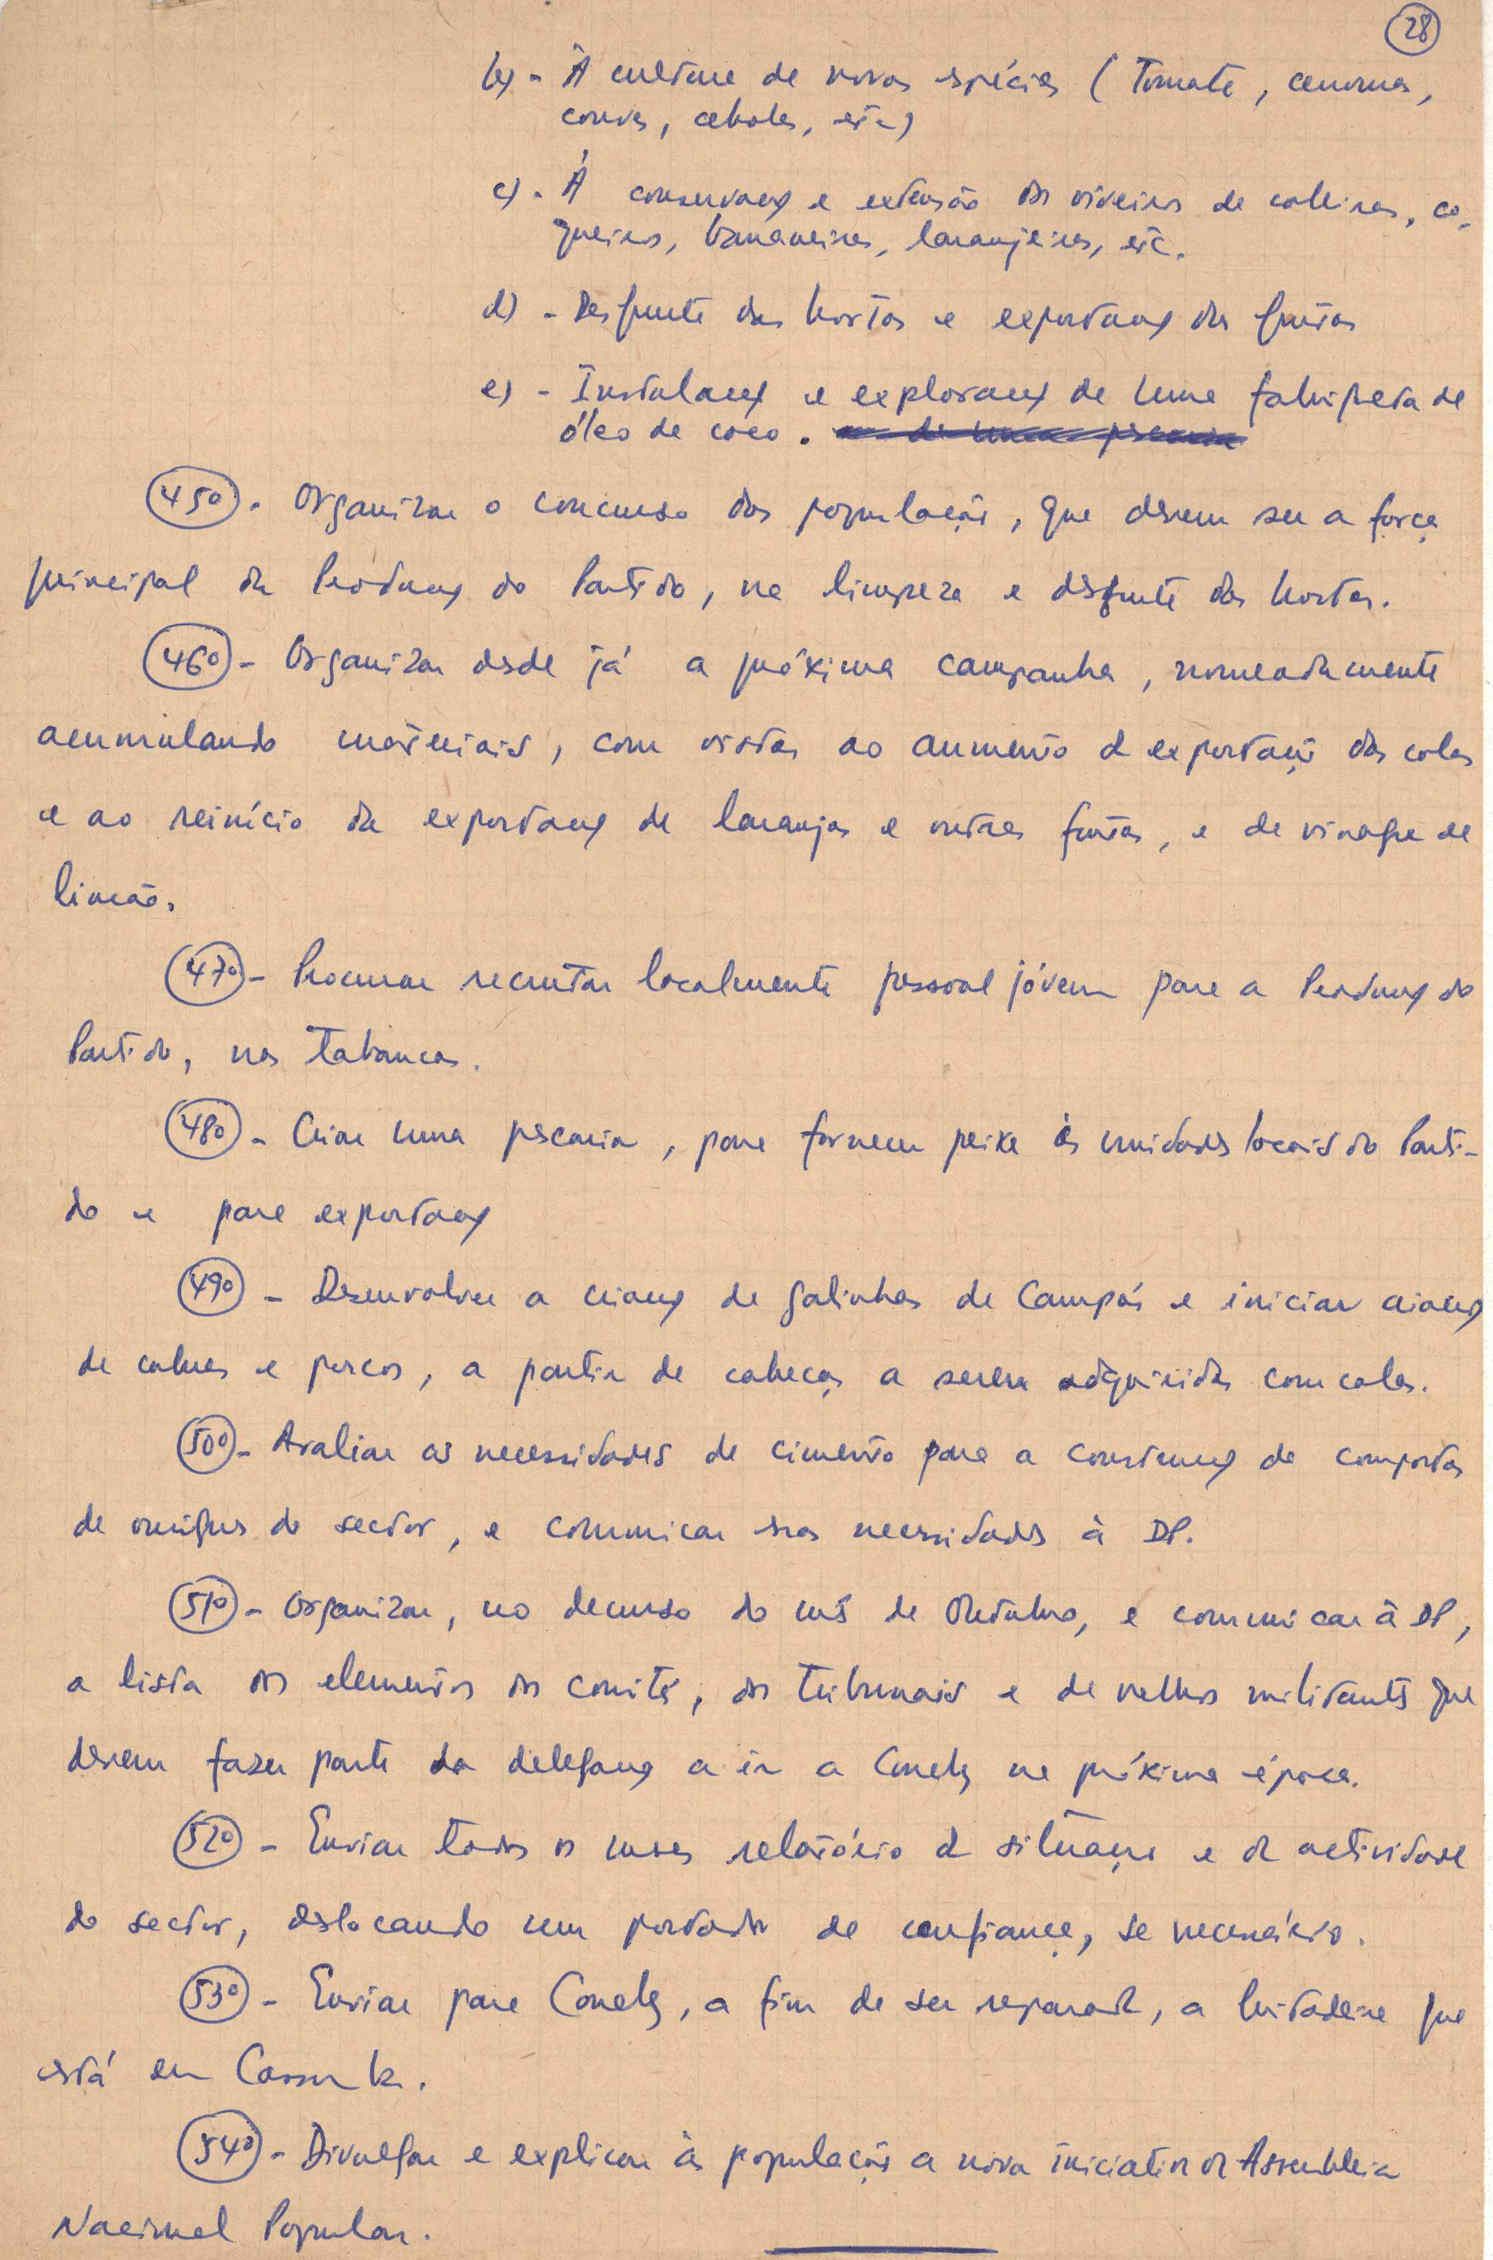 28
b) - À cultura de novas espécies (Tomate, cenouras,
couves, cebolas, etc)
c) - À conservação e extensão dos viveiros de coleiras, co-
queiros, bananeiras, laranjeiras, etc.
d) - Desfrute das hortas e exportação das frutas
e) - Instalação e exploração de uma fabriqueta de
óleo de coco.
45º - Organizar o concurso das populações, que devem ser a força
principal da Produção do Partido, na limpeza e desfrute das hortas.
46º - Organizar desde já a próxima campanha, nomeadamente
acumulando materiais, com vistas ao aumento da exportação das colas
e ao reinício da exportação de laranjas e outras frutas, e de vinagre de
limão.
47º - Procurar recrutar localmente pessoal jóvem para a Produção do
Partido, nas tabancas.
48º - Criar uma pescaria, para fornecer peixe às unidades locais do Parti-
do e para exportação
49º - Desenvolver a criação de galinhas de Campós e iniciar criação
de cabras e porcos, a partir de cabeças a serem adquiridas com colas.
50º - Avaliar as necessidades de cimento para a construção de comportas
de ouriques do sector, e comunicar essas necessidades à DP.
51º - Organizar, no decurso do mês de Outubro, e comunicar à DP,
a lista dos elementos dos comités, dos tribunais e de velhos militantes que
devem fazer parte da delegação a ir a Conakry na próxima época.
52º - Enviar todos os meses relatório da situação e da actividade
do sector, deslocando um portador de confiança, se necessário.
53º - Enviar para Conakry, a fim de ser reparada, a britadeira que
está em Cassumba.
54º - Divulgar e explicar às populações a nova iniciativa da Assembleia
Nacional Popular.